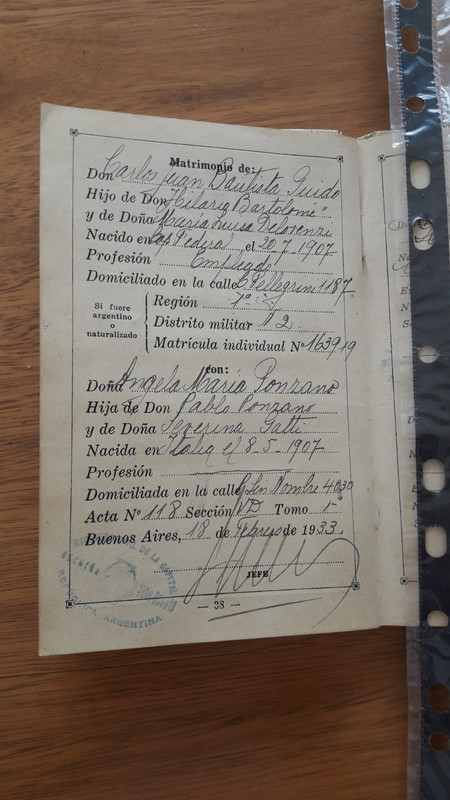 Matrimonio de:
Don Carlos Juan Bautista Guido
Hijo de Don "Hilario Bartolomé"
y de Doña María Luisa Delorenzi
Nacido en Cap Federal, el 20-7-1907
Profesión Empleado
Domiciliado en la calle C Pellegrini 1187
Si fuere
argentino
o
naturalizado
Región 1ª
Distrito militar 2
Matrícula individual Nº 163919
con:
Doña Angela María Ponzano
Hija de Don Pablo Ponzano
y de Doña Severina Gatti
Nacida en Italia el 8-5-1907
Profesión
Domiciliada en la calle Sin Nombre 4030
Acta Nº 118 Sección Tomo 1º
Buenos Aires, 18 de Febrero de 1933.
JEFE
— 38 —
DE LA CAPITAL
REPUBLICA ARGENTINA